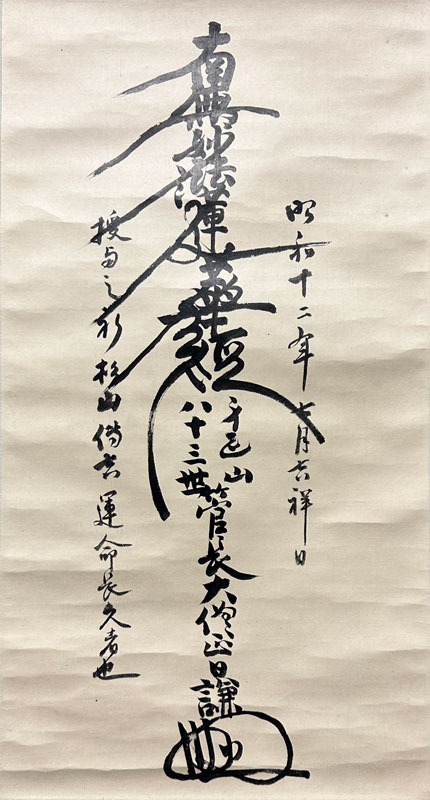 昭和十二年七月吉祥日
南無妙法蓮華経
山
八十三世管長大僧正日謙
授与之 杉山 吉運命長久者也